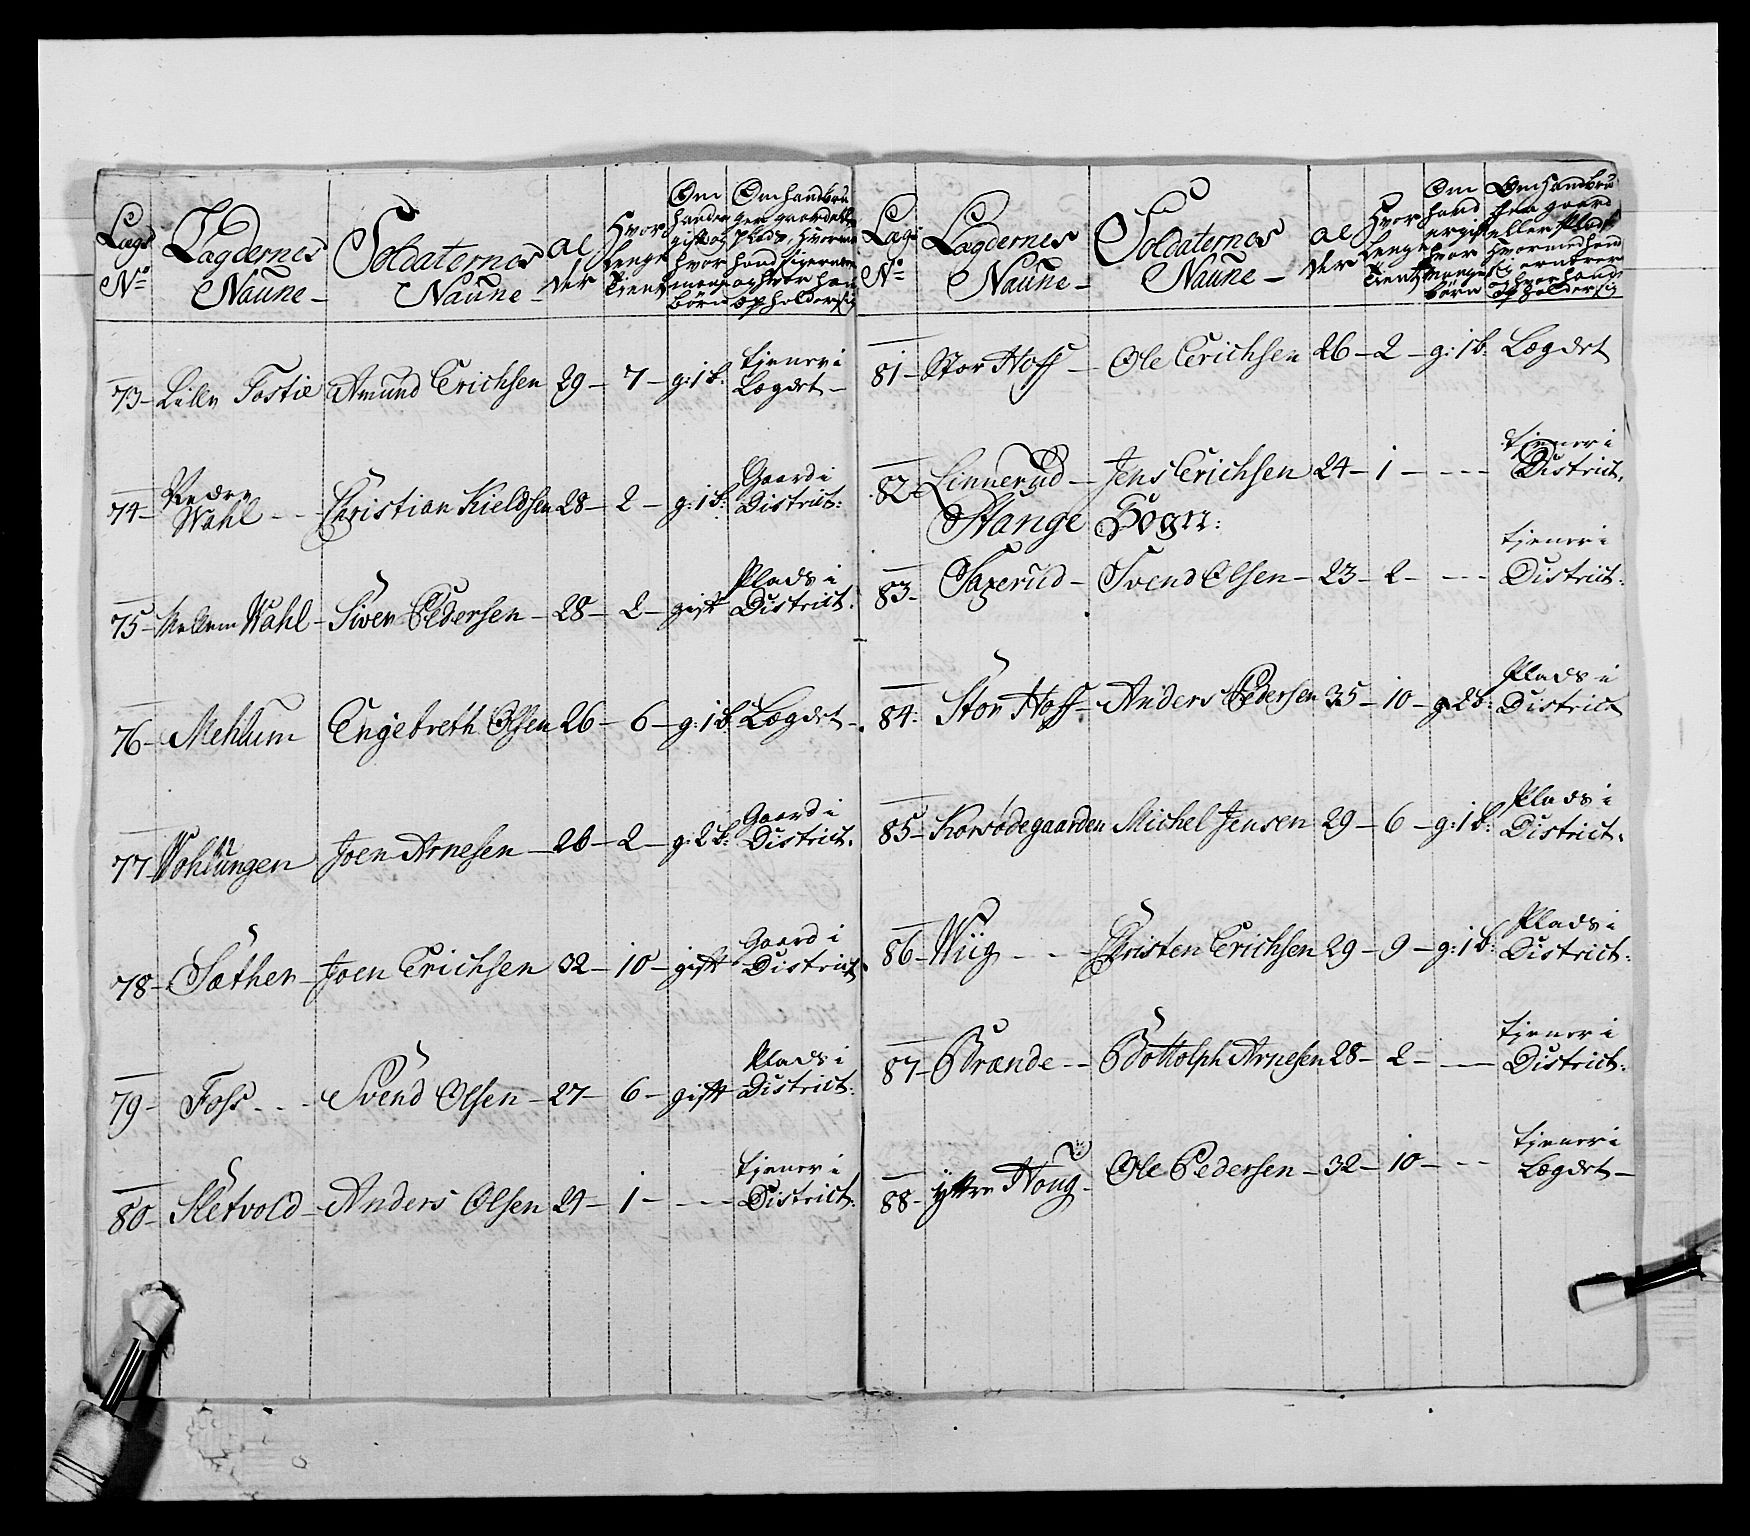 Lægs No
Lægdernes Naune
Soldaternes Naune
Al der
Hvor lenge tient
Om hand er gift og hvor mange børn
73 – Lille Fostie Amund Erichsen 29 – 7 – g: 1 b: tjener i Lægdet –
74 – Nedre Wahl – – Christian Kieldsen 28 – 2 – g: 1 b: Gaard i District:
75 – Mellem Wahl – Siver Pedersen – 28 – 2 – gift Plads i District:
76 – Mehlum Engebreth Olsen 26 – 6 – g: 1 b: Lægdet –
77 Wohlungen Joen Arnesen – 28 – 2 – g: 2 b: Gaard i District:
78 – Sæther – Joen Erichsen 32 – 10 – gift Gaard i District
79 – Foss – – – Svend Olsen – 27 – 6 – gift Plads i District:
80 – Sletvold – Anders Olsen 24 – 1 – – – – tjener i District:
Lægs No
Lægdernes Naune –
Soldaternes Naune –
Al der
Hvor lenge tient
81 – Stor Hoff – Ole Erichsen 26 – 2 – g: 1 b: Lægdet
82 – Linnerud – Jens Erichsen 24 – 1 – – – – tjener i District:
Stange Sogn:
83 – Saxerud – Svend Olsen – 23 – 2 – – – – tjener i District:
84: Stor Hoff – Anders Pedersen 35 – 10 – g 2 b: Plads i District
85 – Korsødegaarden Michel Jensen 29 – 6 – g: 1 b: Plads i District:
86 – Wiig – – – Christen Erichsen 29 – 9 – g: 1 b: Plads i District:
87 – Brænde – – Bottolph Arnesen 28 – 2 – – – tjener i District:
88 – Yttre Houg – Ole Pedersen – 32 – 10 – – – tjener i Lægdet –